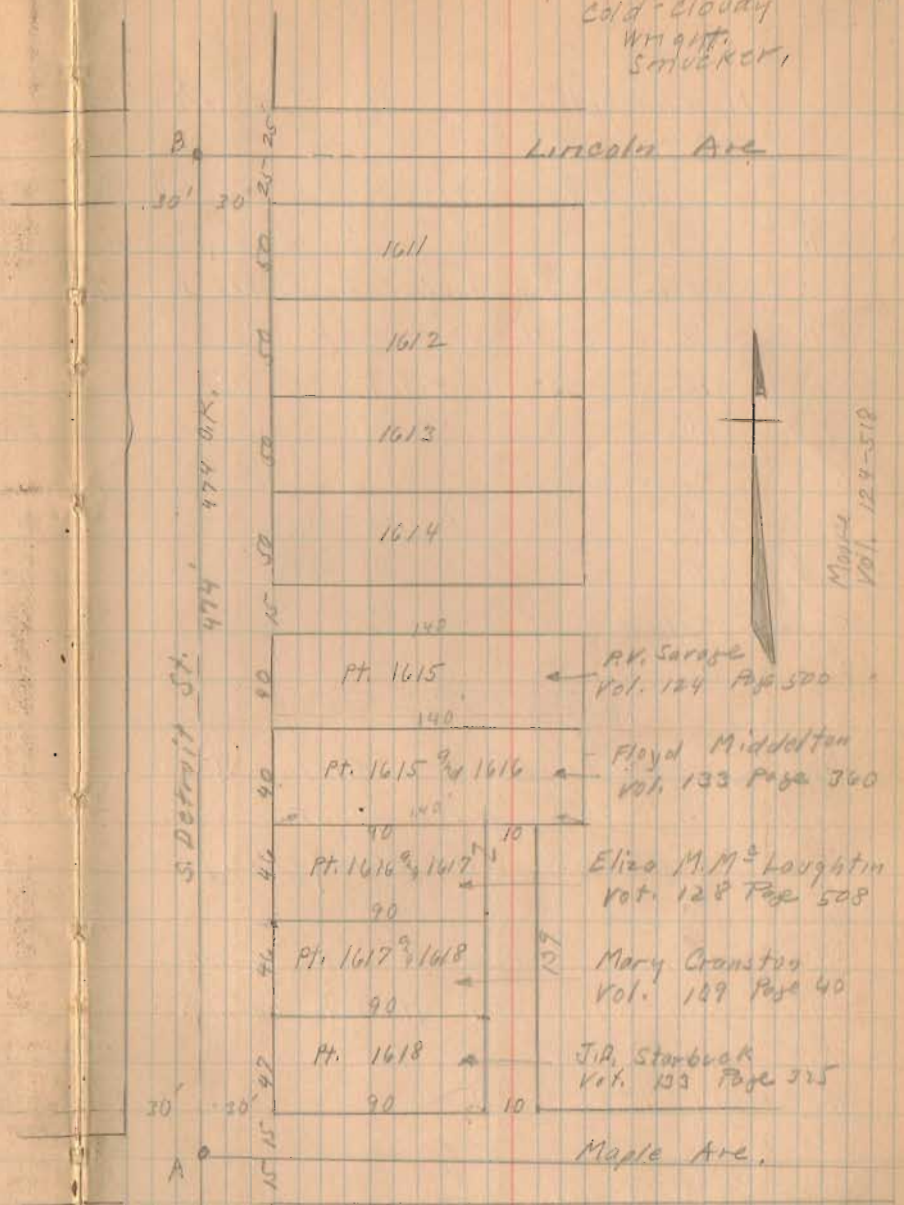 Cold-Cloudy
Wright.
Smucker,
25
B
Lincoln Ave
25
30' 30'
50
1611
50
1612
50
1613
474' O.K.
50
1614
15
Mouse
Vol. 124-518
140
40
Pt. 1615
A.V. Savage
Vol. 124 Page 500
140
40
Pt. 1615 & 1616
Floyd Middelton
Vol. 133 Page 360
140'
90 10
46
Pt. 1616 & 1617
Eliza M. Mc Laughtin
Vol. 128 Page 508
90
S. Detroit St.
46
Pt. 1617 & 1618
139
Mary Cranston
Vol. 109 Page 40
90
47
Pt. 1618
J.A. Starbuck
Vol. 133 Page 325
30' 30'
90 10
15
A
15
Maple Ave.